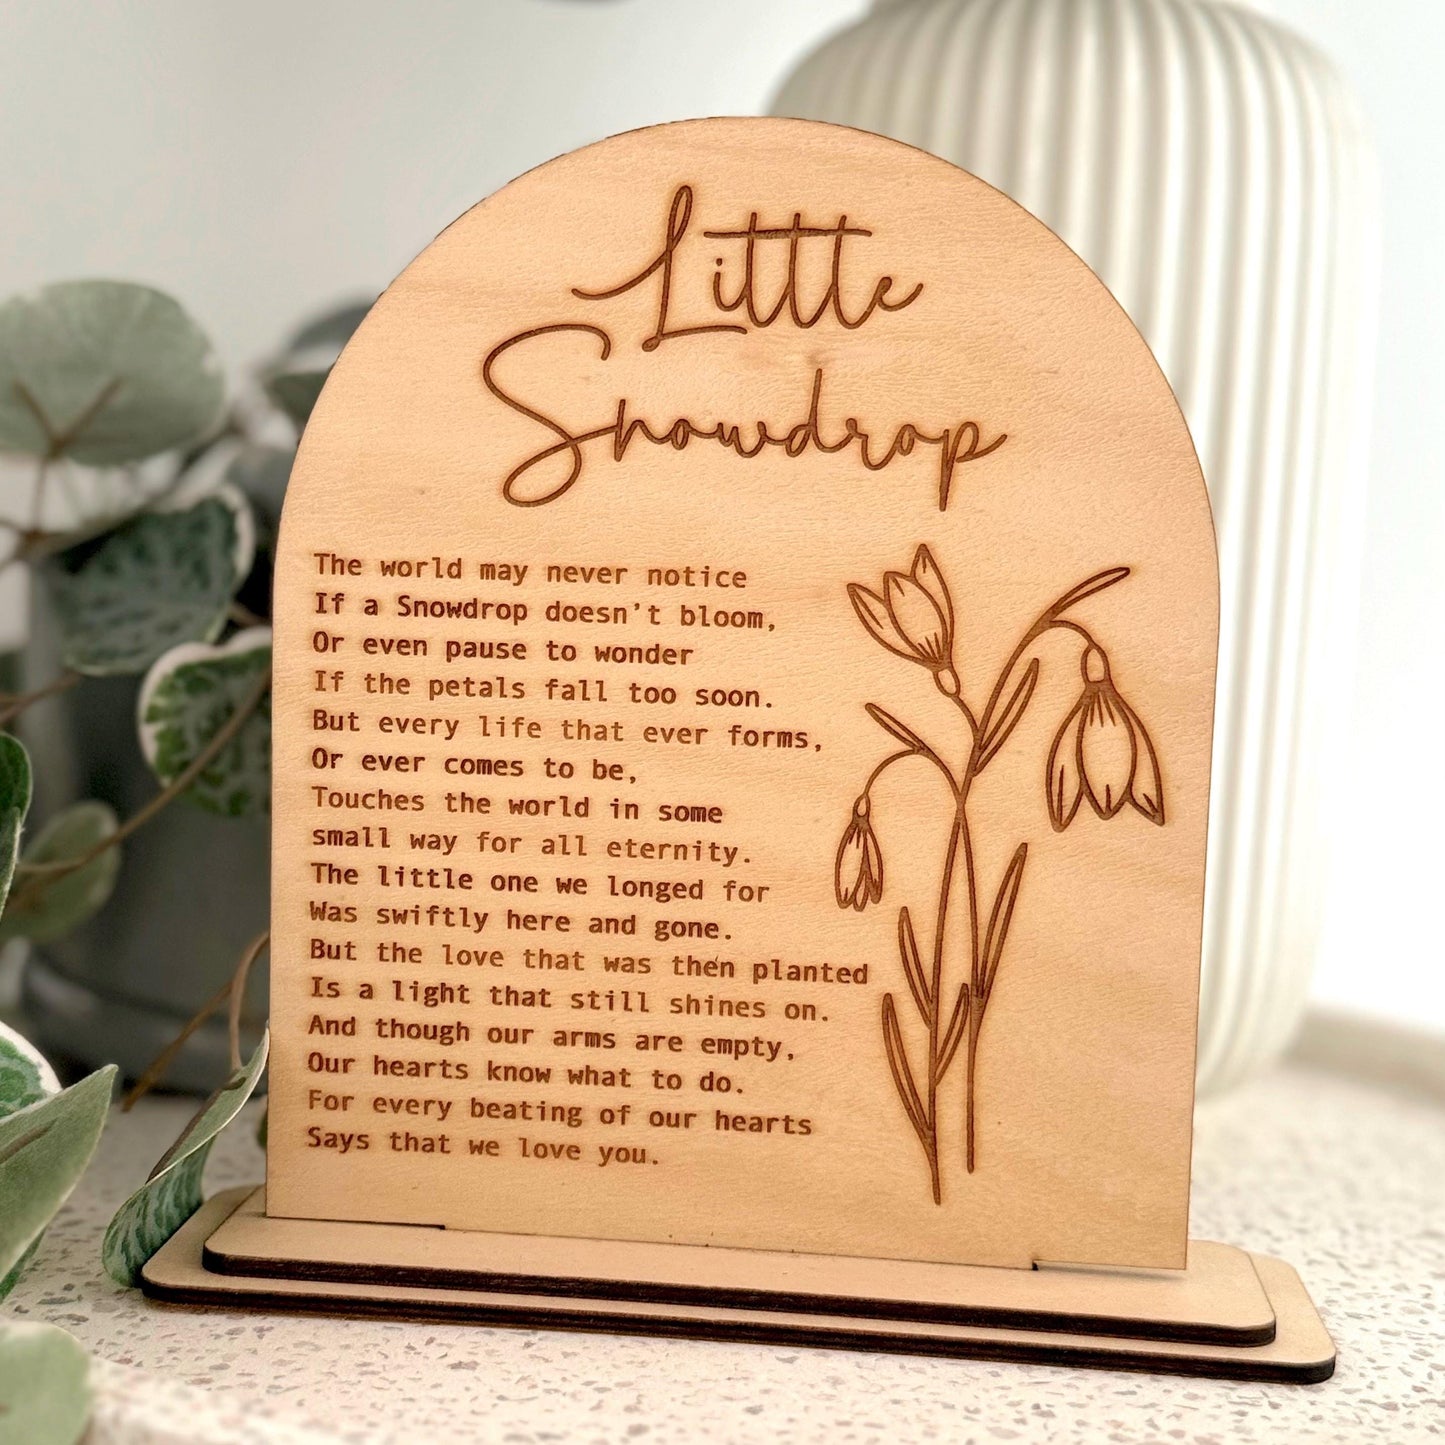 Little
Snowdrop
The world may never notice
If a Snowdrop doesn't bloom,
Or even pause to wonder
If the petals fall too soon.
But every life that ever forms,
Or ever comes to be,
Touches the world in some
small way for all eternity.
The little one we longed for
Was swiftly here and gone.
But the love that was then planted
Is a light that still shines on.
And though our arms are empty,
Our hearts know what to do.
For every beating of our hearts
Says that we love you.